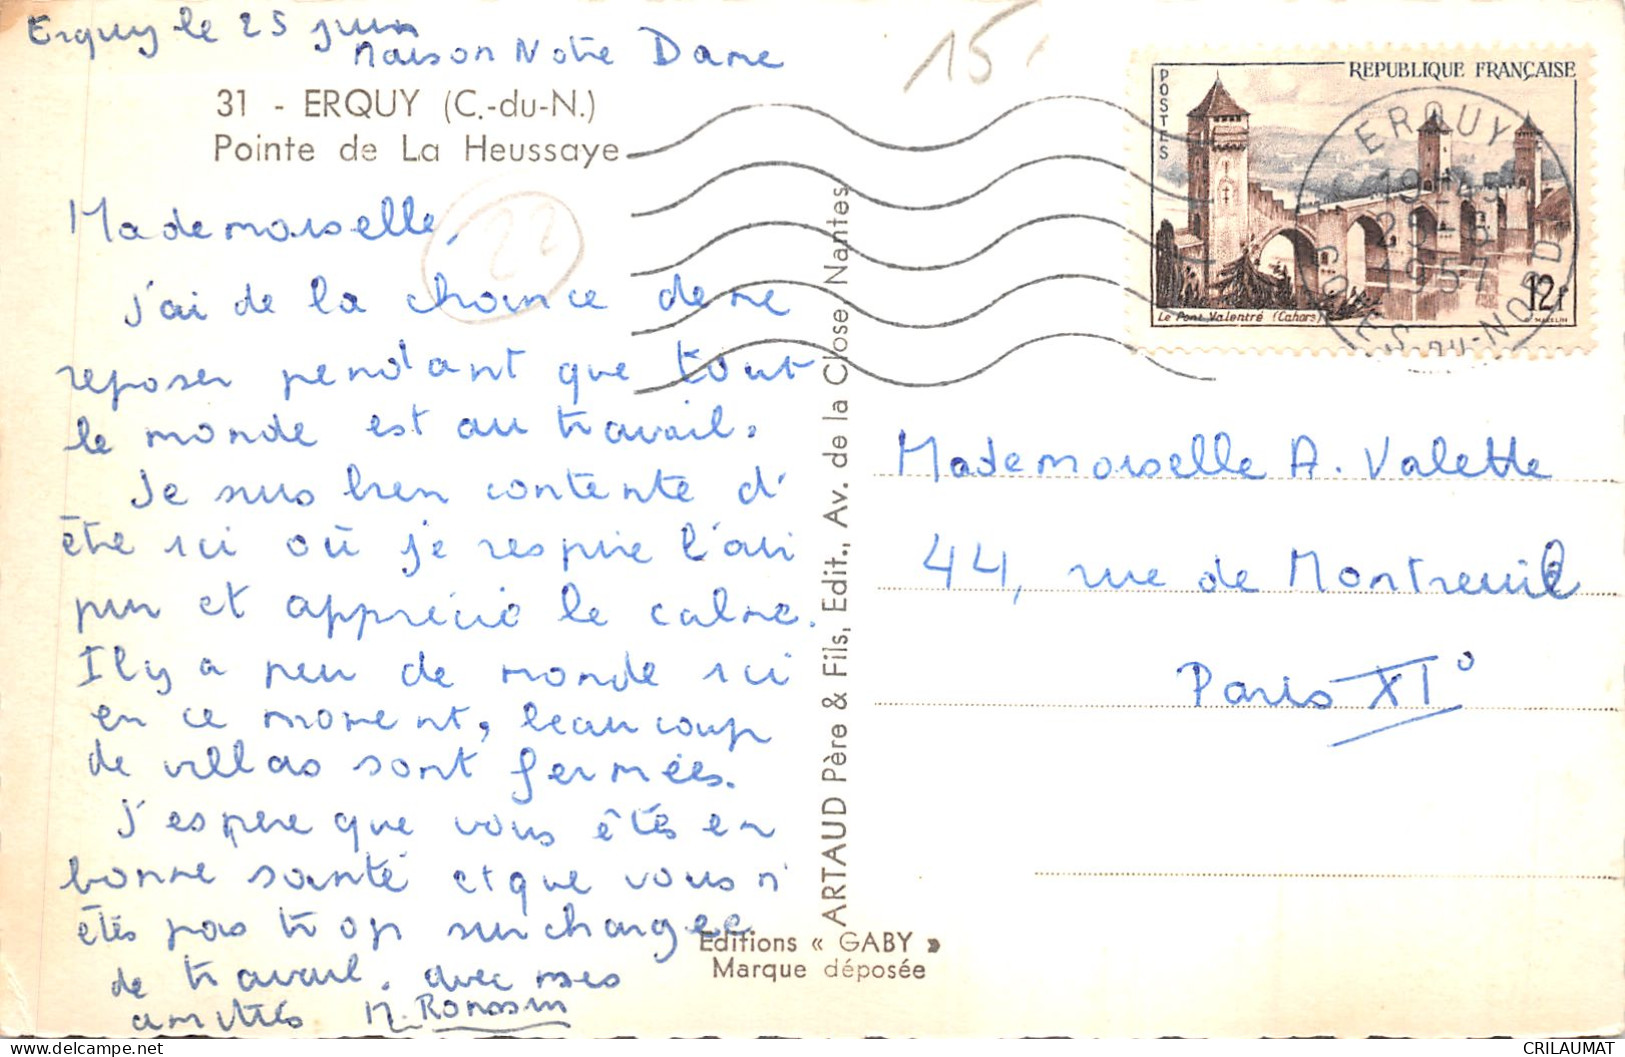 Erquy le 25 juin
Maison Notre Dame
31 - ERQUY (C.-du-N.)
Pointe de La Heussaye
Mademoiselle,
j'ai de la chance de me
reposer pendant que tout
le monde est au travail.
Je suis bien contente d'
être ici où je respire l'air
pur et apprécie le calme.
Il y a peu de monde ici
en ce moment, beaucoup
de villas sont fermées.
J'espère que vous êtes en
bonne santé et que vous n'
êtes pas trop surchargée
de travail. avec mes
amitiés M. Ronassin
22
15
ARTAUD Père & Fils, Edit., Av. de la Close Nantes
Editions « GABY »
Marque déposée
POSTES
REPUBLIQUE FRANÇAISE
Le Pont Valentré (Cahors)
12f
MAZELIN
ERQUY
19-15
25-6
1957
COTES-DU-NORD
Mademoiselle A. Valette
44, rue de Montreuil
Paris XI°
CRILAUMAT